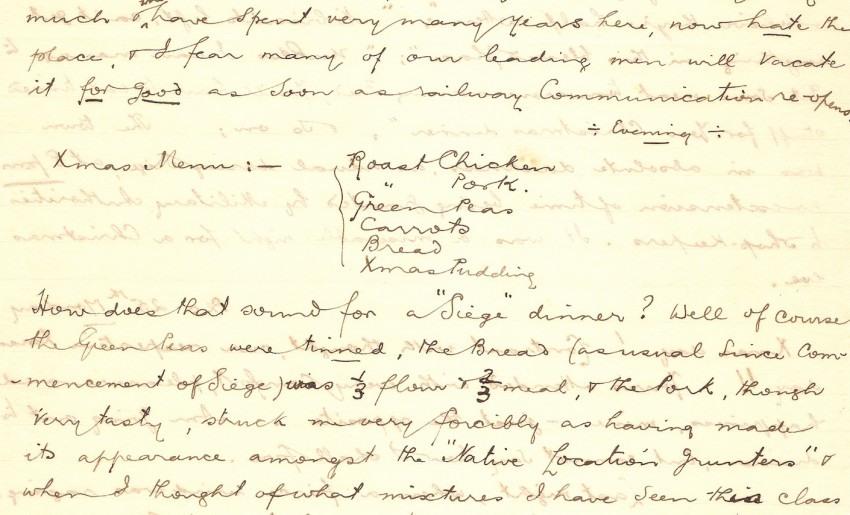 much & have spent very many years here, now hate the
place, & I fear many of our leading men will vacate
it for good as soon as railway Communication re-opens.
÷ Evening ÷
Xmas Menu :— Roast Chicken
" Pork.
Green Peas
Carrots
Bread
Xmas Pudding
How does that sound for a "Siege" dinner? Well of course
the Green Peas were tinned, the Bread (as usual since Com-
-mencement of Siege) was 1/3 flour & 2/3 meal, & the Pork, though
very tasty, struck me very forcibly as having made
its appearance amongst the "Native Location Grunters" &
when I thought of what mixtures I have seen this class